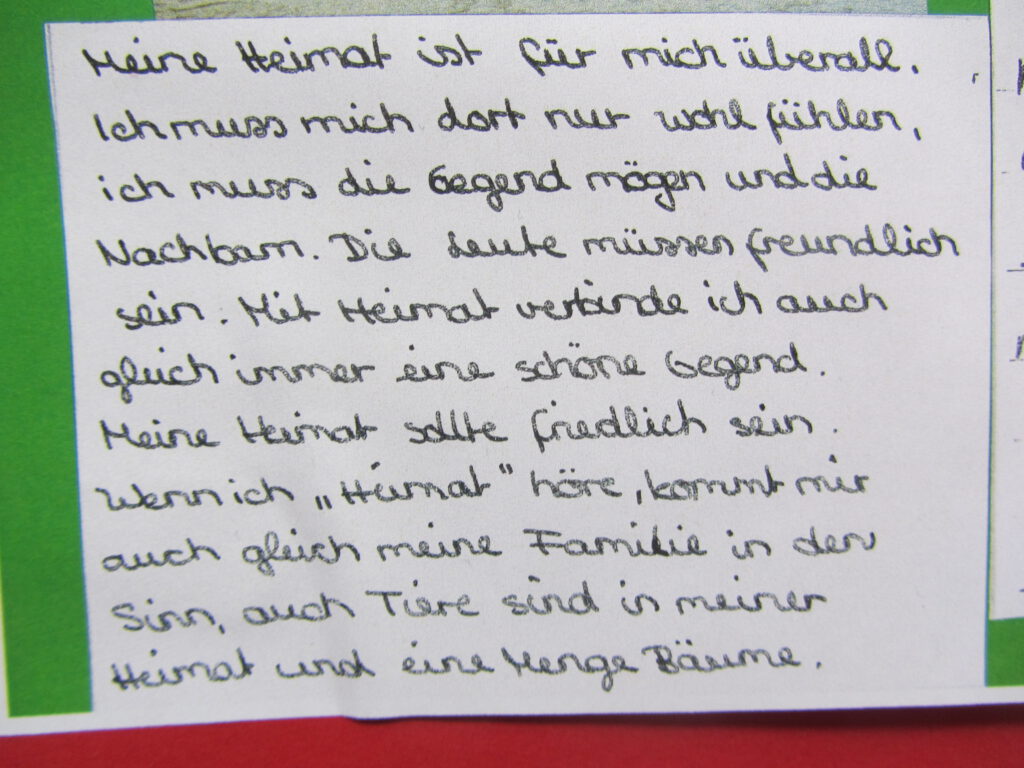 Meine Heimat ist für mich überall.
Ich muss mich dort nur wohl fühlen,
ich muss die Gegend mögen und die
Nachbarn. Die Leute müssen freundlich
sein. Mit Heimat verbinde ich auch
gleich immer eine schöne Gegend.
Meine Heimat sollte friedlich sein.
Wenn ich „Heimat" höre, kommt mir
auch gleich meine Familie in den
Sinn, auch Tiere sind in meiner
Heimat und eine Menge Bäume.